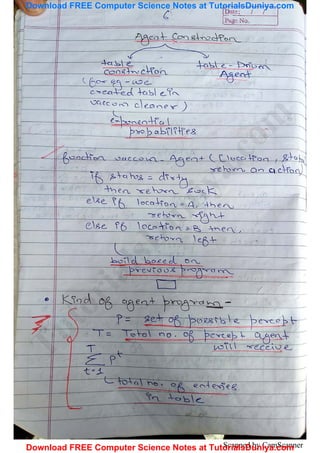 Download FREE Computer Science Notes at TutorialsDuniya.com
Date: / /
Page No.
6
Agent Construction
table construction
table-Driven Agent
(for eg - we
created table in
vaccum cleaner)
exponential
probabilities
function vaccum-Agent ([location, status]
return an action
if status = dirty
then return suck
else if location = A, then
return right
else if location = B then,
return left
build based on
previous program
• Kind of agent program -
P = set of possible percept
T = Total no. of percept agent
will receive
T
∑ P^t
t=1
total no. of enteries
in table
Scanned by CamScanner
Download FREE Computer Science Notes at TutorialsDuniya.com